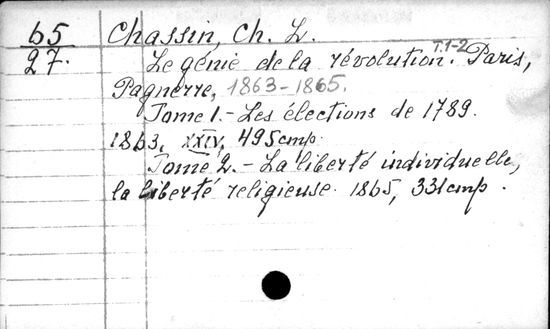 65 Chassin, Ch. L.
27. Le génie de la révolution. T.1-2. Paris,
Pagnerre, 1863-1865.
Tome 1.-Les élections de 1789.
1863, XXIV, 495 стр.
Tome 2.-La liberté individuelle,
la liberté religieuse. 1865, 331 стр.